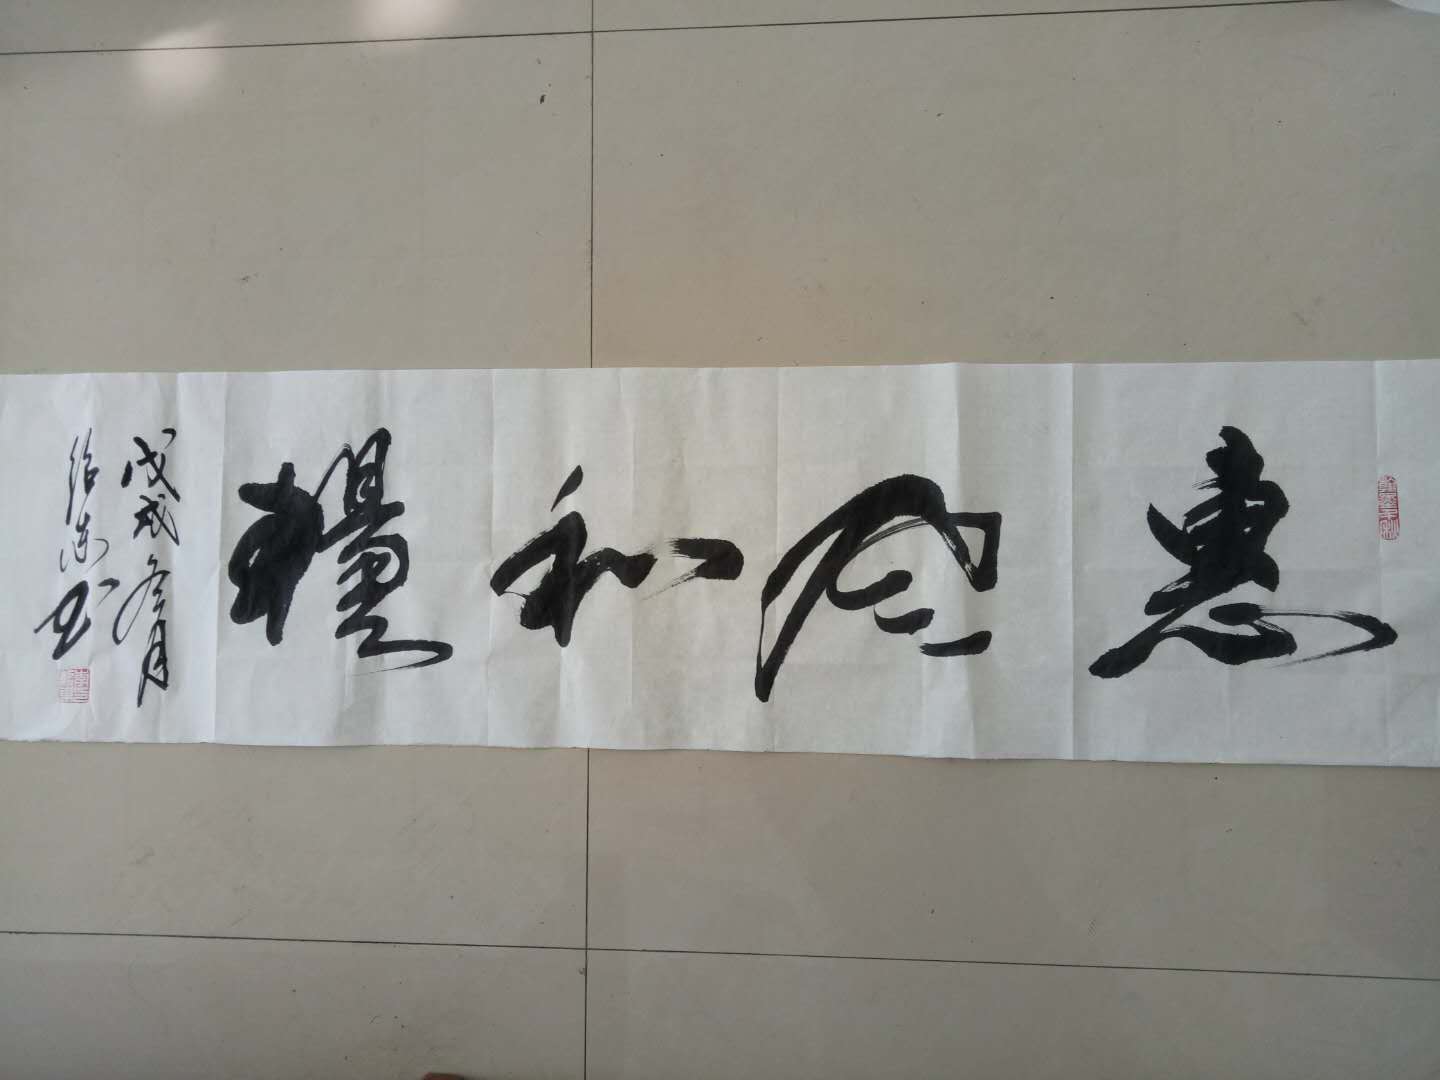 惠风和畅
戊戌冬月
书